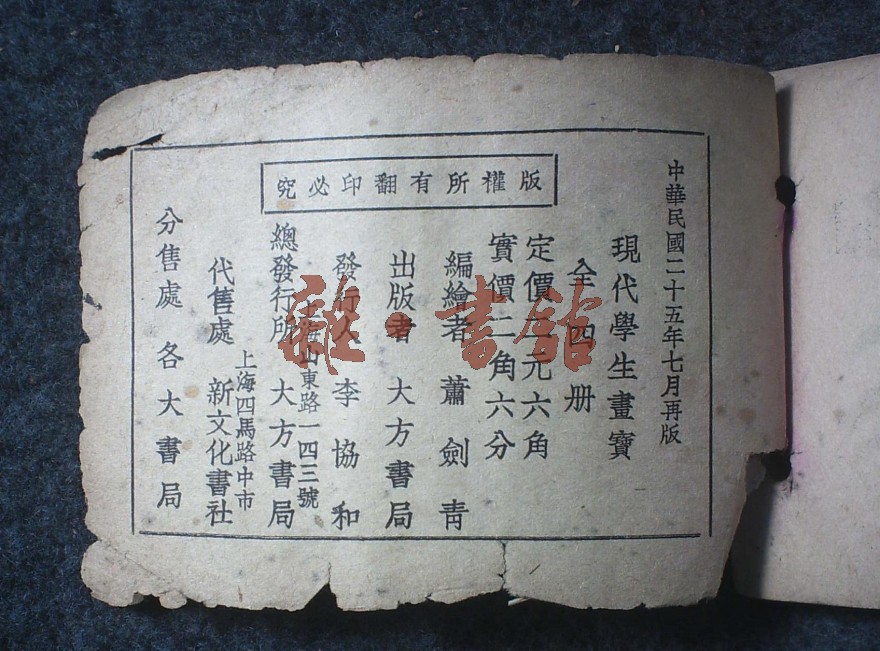 中華民國二十五年七月再版
版權所有翻印必究
現代學生畫寶
全四册
定價二元六角
實價二角六分
編繪者 蕭劍青
出版者 大方書局
發行人 李協和
上海山東路一四三號
總發行所 大方書局
上海四馬路中市
代售處 新文化書社
分售處 各大書局
雜·書館